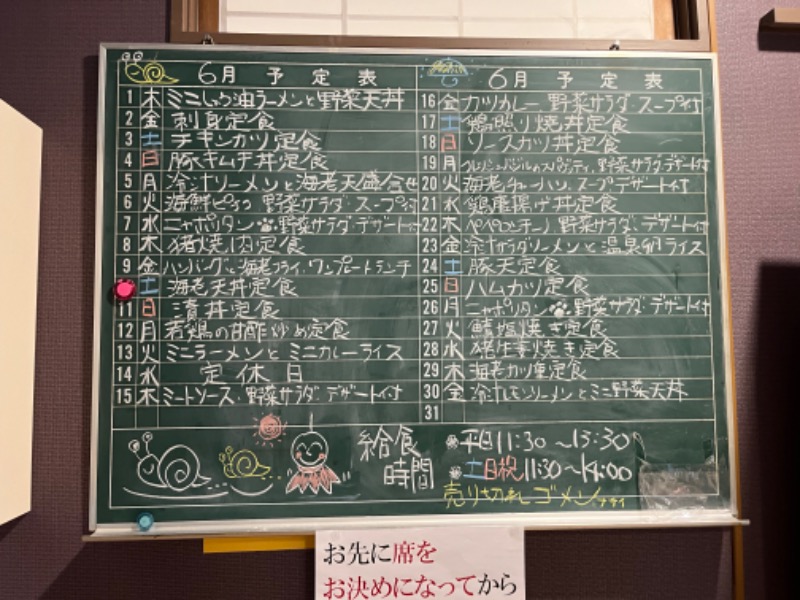 6月 予定表
1 木 ミニしょう油ラーメンと野菜天丼
2 金 刺身定食
3 土 チキンカツ定食
4 日 豚キムチ丼定食
5 月 冷汁ソーメンと海老天盛合せ
6 火 海鮮ピラフ 野菜サラダ スープ付
7 水 ニャポリタン 野菜サラダ・デザート付
8 木 猪焼肉定食
9 金 ハンバーグと海老フライ・ワンプレートランチ
土 海老天丼定食
11 日 清丼定食
12 月 若鶏の甘酢炒め定食
13 火 ミニラーメンとミニカレーライス
14 水 定休日
15 木 ミートソース・野菜サラダ・デザート付
6月 予定表
16 金 カツカレー 野菜サラダ・スープ付
17 土 鶏照り焼丼定食
18 日 ソースカツ丼定食
19 月 野菜サラダ・デザート付
20 火 海老チャーハン、スープデザート付
21 水 定食
22 木 ペペロンチーノ 野菜サラダ・デザート付
23 金 冷サラダソーメンと温泉卵ライス
24 土 豚天定食
25 日 ハムカツ定食
26 月 ニャポリタン 野菜サラダ・デザート付
27 火 鯖塩焼き定食
28 水 猪生姜焼き定食
29 木 海老カツ定食
30 金 冷汁レモンソーメンとミニ野菜天丼
31
給食時間
平日11:30〜13:30
土日祝11:30〜14:00
売り切れゴメンナサイ
お先に席を
お決めになってから